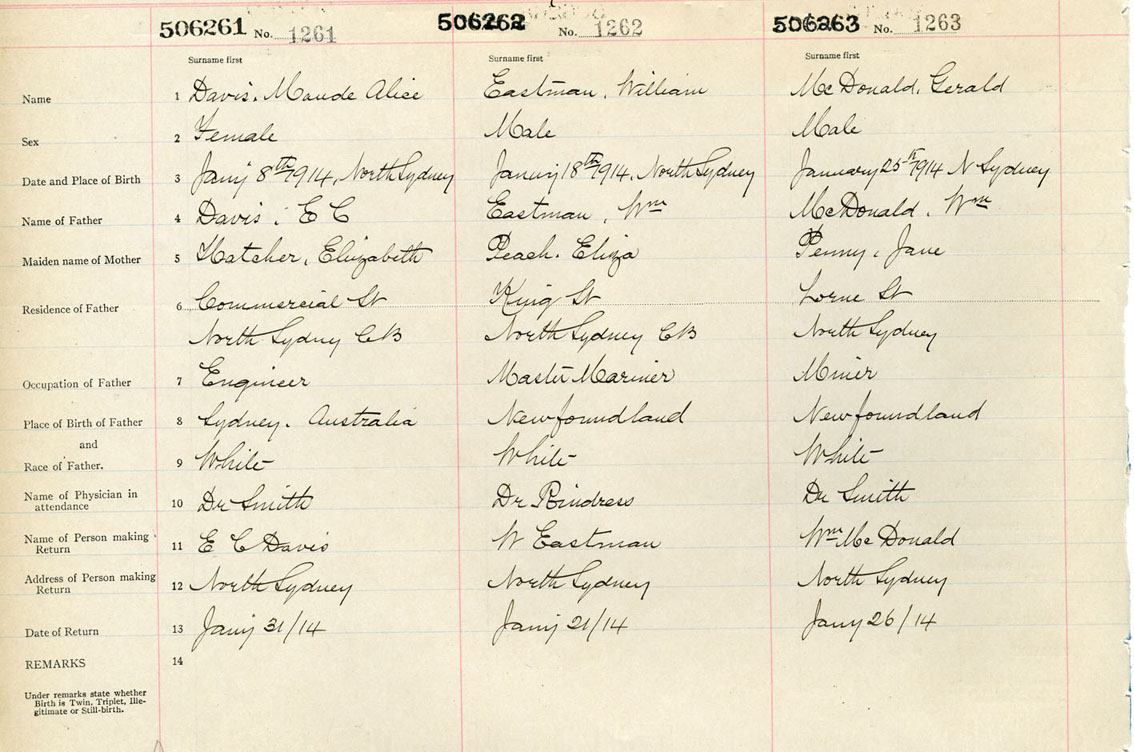 506261 No. 1261 506262 No. 1262 506263 No. 1263
Surname first Surname first Surname first
Name 1 Davis, Maude Alice Eastman, William McDonald, Gerald
Sex 2 Female Male Male
Date and Place of Birth 3 Jany 8th 1914, North Sydney January 18th 1914, North Sydney January 25th 1914 N Sydney
Name of Father 4 Davis, E C Eastman, Wm McDonald, Wm
Maiden name of Mother 5 Hatcher, Elizabeth Peach, Eliza Penny, Jane
Residence of Father 6 Commercial St King St Lorne St
North Sydney CB North Sydney CB North Sydney
Occupation of Father 7 Engineer Master Mariner Miner
Place of Birth of Father 8 Sydney, Australia Newfoundland Newfoundland
and
Race of Father. 9 White White White
Name of Physician in
attendance 10 Dr Smith Dr Rindress Dr Smith
Name of Person making
Return 11 E C Davis W Eastman Wm McDonald
Address of Person making
Return 12 North Sydney North Sydney North Sydney
Date of Return 13 Jany 31/14 Jany 21/14 Jany 26/14
REMARKS 14
Under remarks state whether
Birth is Twin, Triplet, Ille-
gitimate or Still-birth.